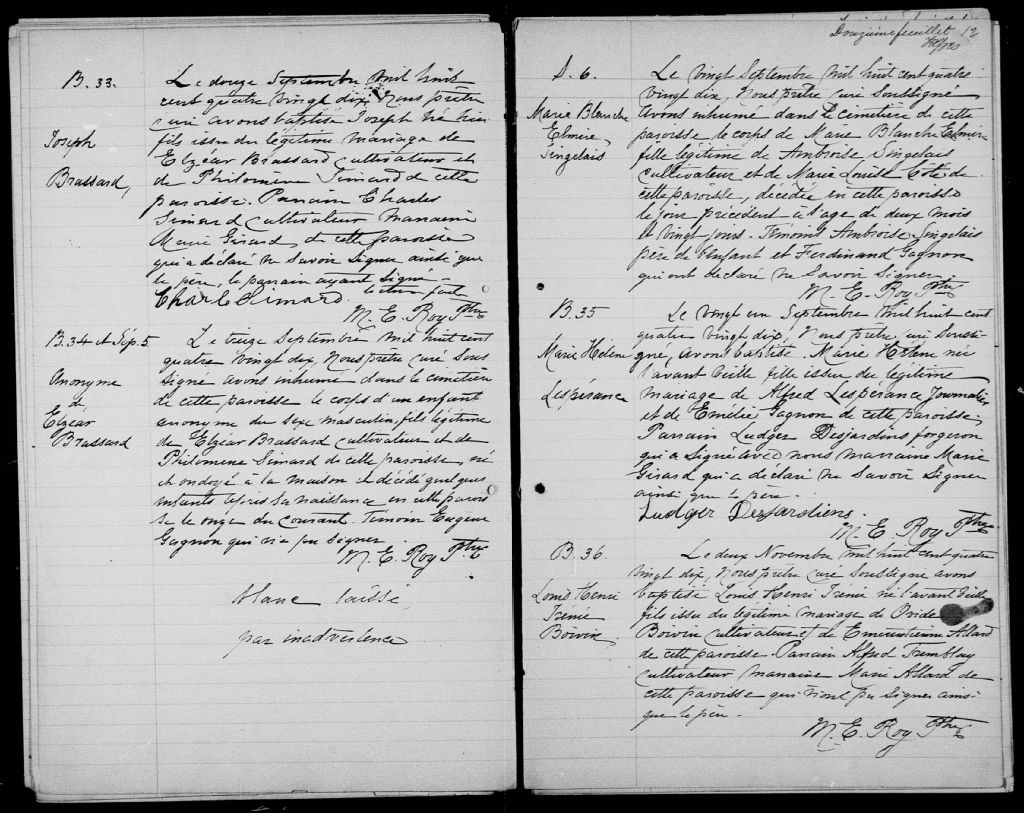 B. 33.
Joseph
Brassard,
Le douze Septembre mil huit
cent quatre vingt dix, Nous prêtre
curé avons baptisé Joseph né hier
fils issu du légitime mariage de
Elzéar Brassard cultivateur et
de Philomène Simard de cette
paroisse. Parrain Charles
Simard cultivateur marraine
Marie Girard, de cette paroisse
qui a déclaré ne savoir signer ainsi que
le père, le parrain ayant signé
lecture faite
Charle Simard.
M. E. Roy Ptre
B. 34 et Sép. 5
Anonyme
de
Elzéar
Brassard
Le treize Septembre mil huit cent
quatre vingt dix, Nous prêtre curé sous
signé avons inhumé dans le cimetière
de cette paroisse le corps d'un enfant
anonyme du sexe masculin, fils légitime
de Elzéar Brassard cultivateur et de
Philomene Simard de cette paroisse, né
et ondoyé à la maison et décédé quelques
instants après sa naissance en cette parois
se le onze du courant. Témoin Eugène
Gagnon qui n'a pu signer.
M. E. Roy Ptre
blanc laissé
par inadvertence
Douzième feuillet 12
S. 6.
Marie Blanche
Elmire
Singelais
Le vingt Septembre mil huit cent quatre
vingt dix, Nous prêtre curé soussigné
avons inhumé dans le cimetière de cette
paroisse le corps de Marie Blanche Elmire
fille légitime de Ambroise Singelais
cultivateur et de Marie Louise Côté de
cette paroisse, décédée en cette paroisse
le jour précédent à l'age de deux mois
et vingt jours. Témoins Ambroise Singelais
père de l'enfant et Ferdinand Gagnon
qui ont déclaré ne savoir signer.
M. E. Roy Ptre
B. 35
Marie Helene
Lespérance
Le vingt un Septembre mil huit cent
quatre vingt dix, Nous prêtre curé soussi-
gné, avons baptisé Marie Helene née
l'avant veille fille issue du légitime
mariage de Alfred Lespérance Journalier
et de Emélie Gagnon de cette paroisse.
Parrain Ludger Desjardins forgeron
qui a signé avec nous marraine Marie
Girard qui a déclaré ne savoir signer
ainsi que le père.
Ludger Desjardiens.
M. E. Roy Ptre
B. 36.
Louis Henri
Irénée
Boivin
Le deux Novembre mil huit cent quatre
vingt dix, Nous prêtre curé soussigné avons
baptisé Louis Henri Irénée né l'avant veille
fils issu du légitime mariage de Onide
Boivin cultivateur et de Allard
de cette paroisse. Parrain Alfred Tremblay
cultivateur marraine Marie Allard de
cette paroisse qui n'ont pu signer ainsi
que le père.
M. E. Roy Ptre